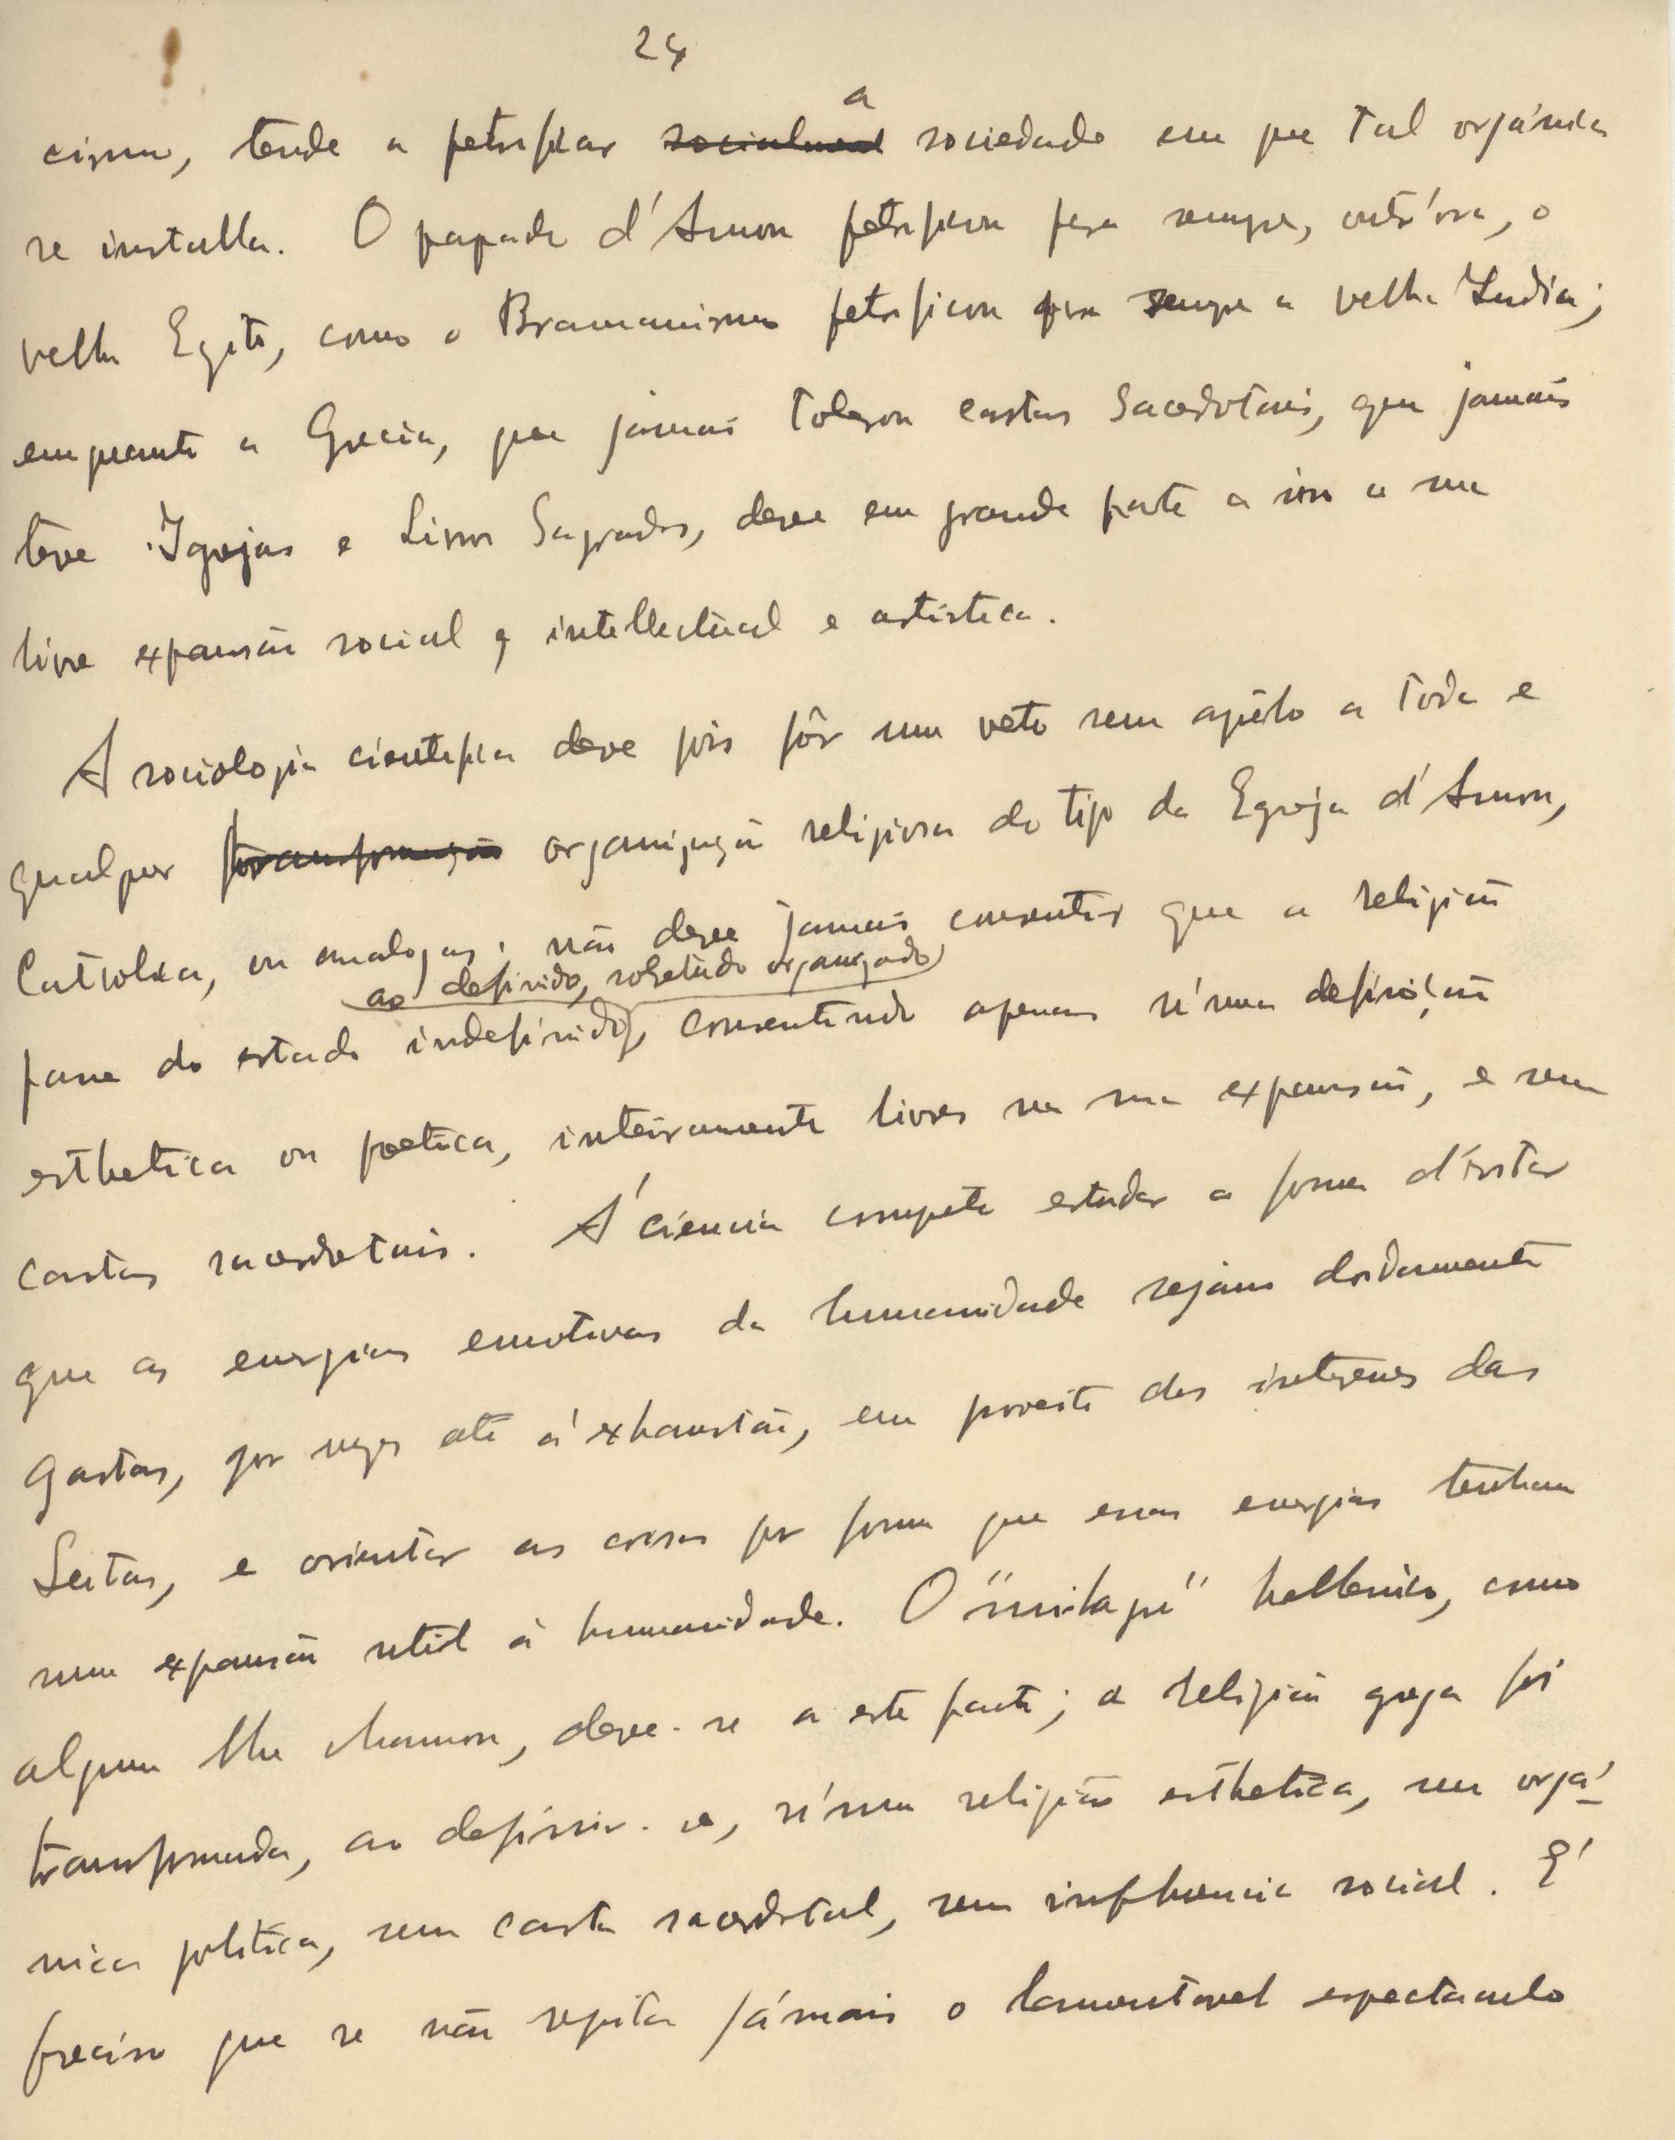 24
cismo, tende a petrificar a sociedade em que tal orgánica
se installa. O papado d'Amon petrificou para sempre, outr'ora, o
velho Egito, como o Bramanismo petrificou para sempre a velha India;
emquanto a Grecia, que jamais tolerou castas Sacerdotais, que jamais
teve Igrejas e Livros Sagrados, deve em grande parte a isso a sua
livre expansão social, intellectual e artistica.
A sociologia cientifica deve pois pôr um veto sem apêlo a toda e
qualquer organização religiosa do tipo da Egreja d'Amon,
Catholica, ou analogas; não deve jamais consentir que a religião
ao definido, sobretudo organizado
passe do estado indefinido, consentindo apenas n'uma definição
esthetica ou poetica, inteiramente livres na sua expansão, e sem
castas sacerdotais. A' ciencia compete estudar a forma d'evitar
que as energias emotivas da humanidade sejam doidamente
gastas, por vezes até á exhaustão, em proveito dos interesses das
Seitas, e orientar as cousas por forma que essas energias tenham
uma expansão util á humanidade. O "milagre" hellenico, como
alguem lhe chamou, deve-se a este facto; a religião grega foi
transformada, ao definir-se, n'uma religião esthetica, sem orgá-
nica politica, sem casta sacerdotal, sem influencia social. E'
preciso que se não repita jámais o lamentavel espectaculo